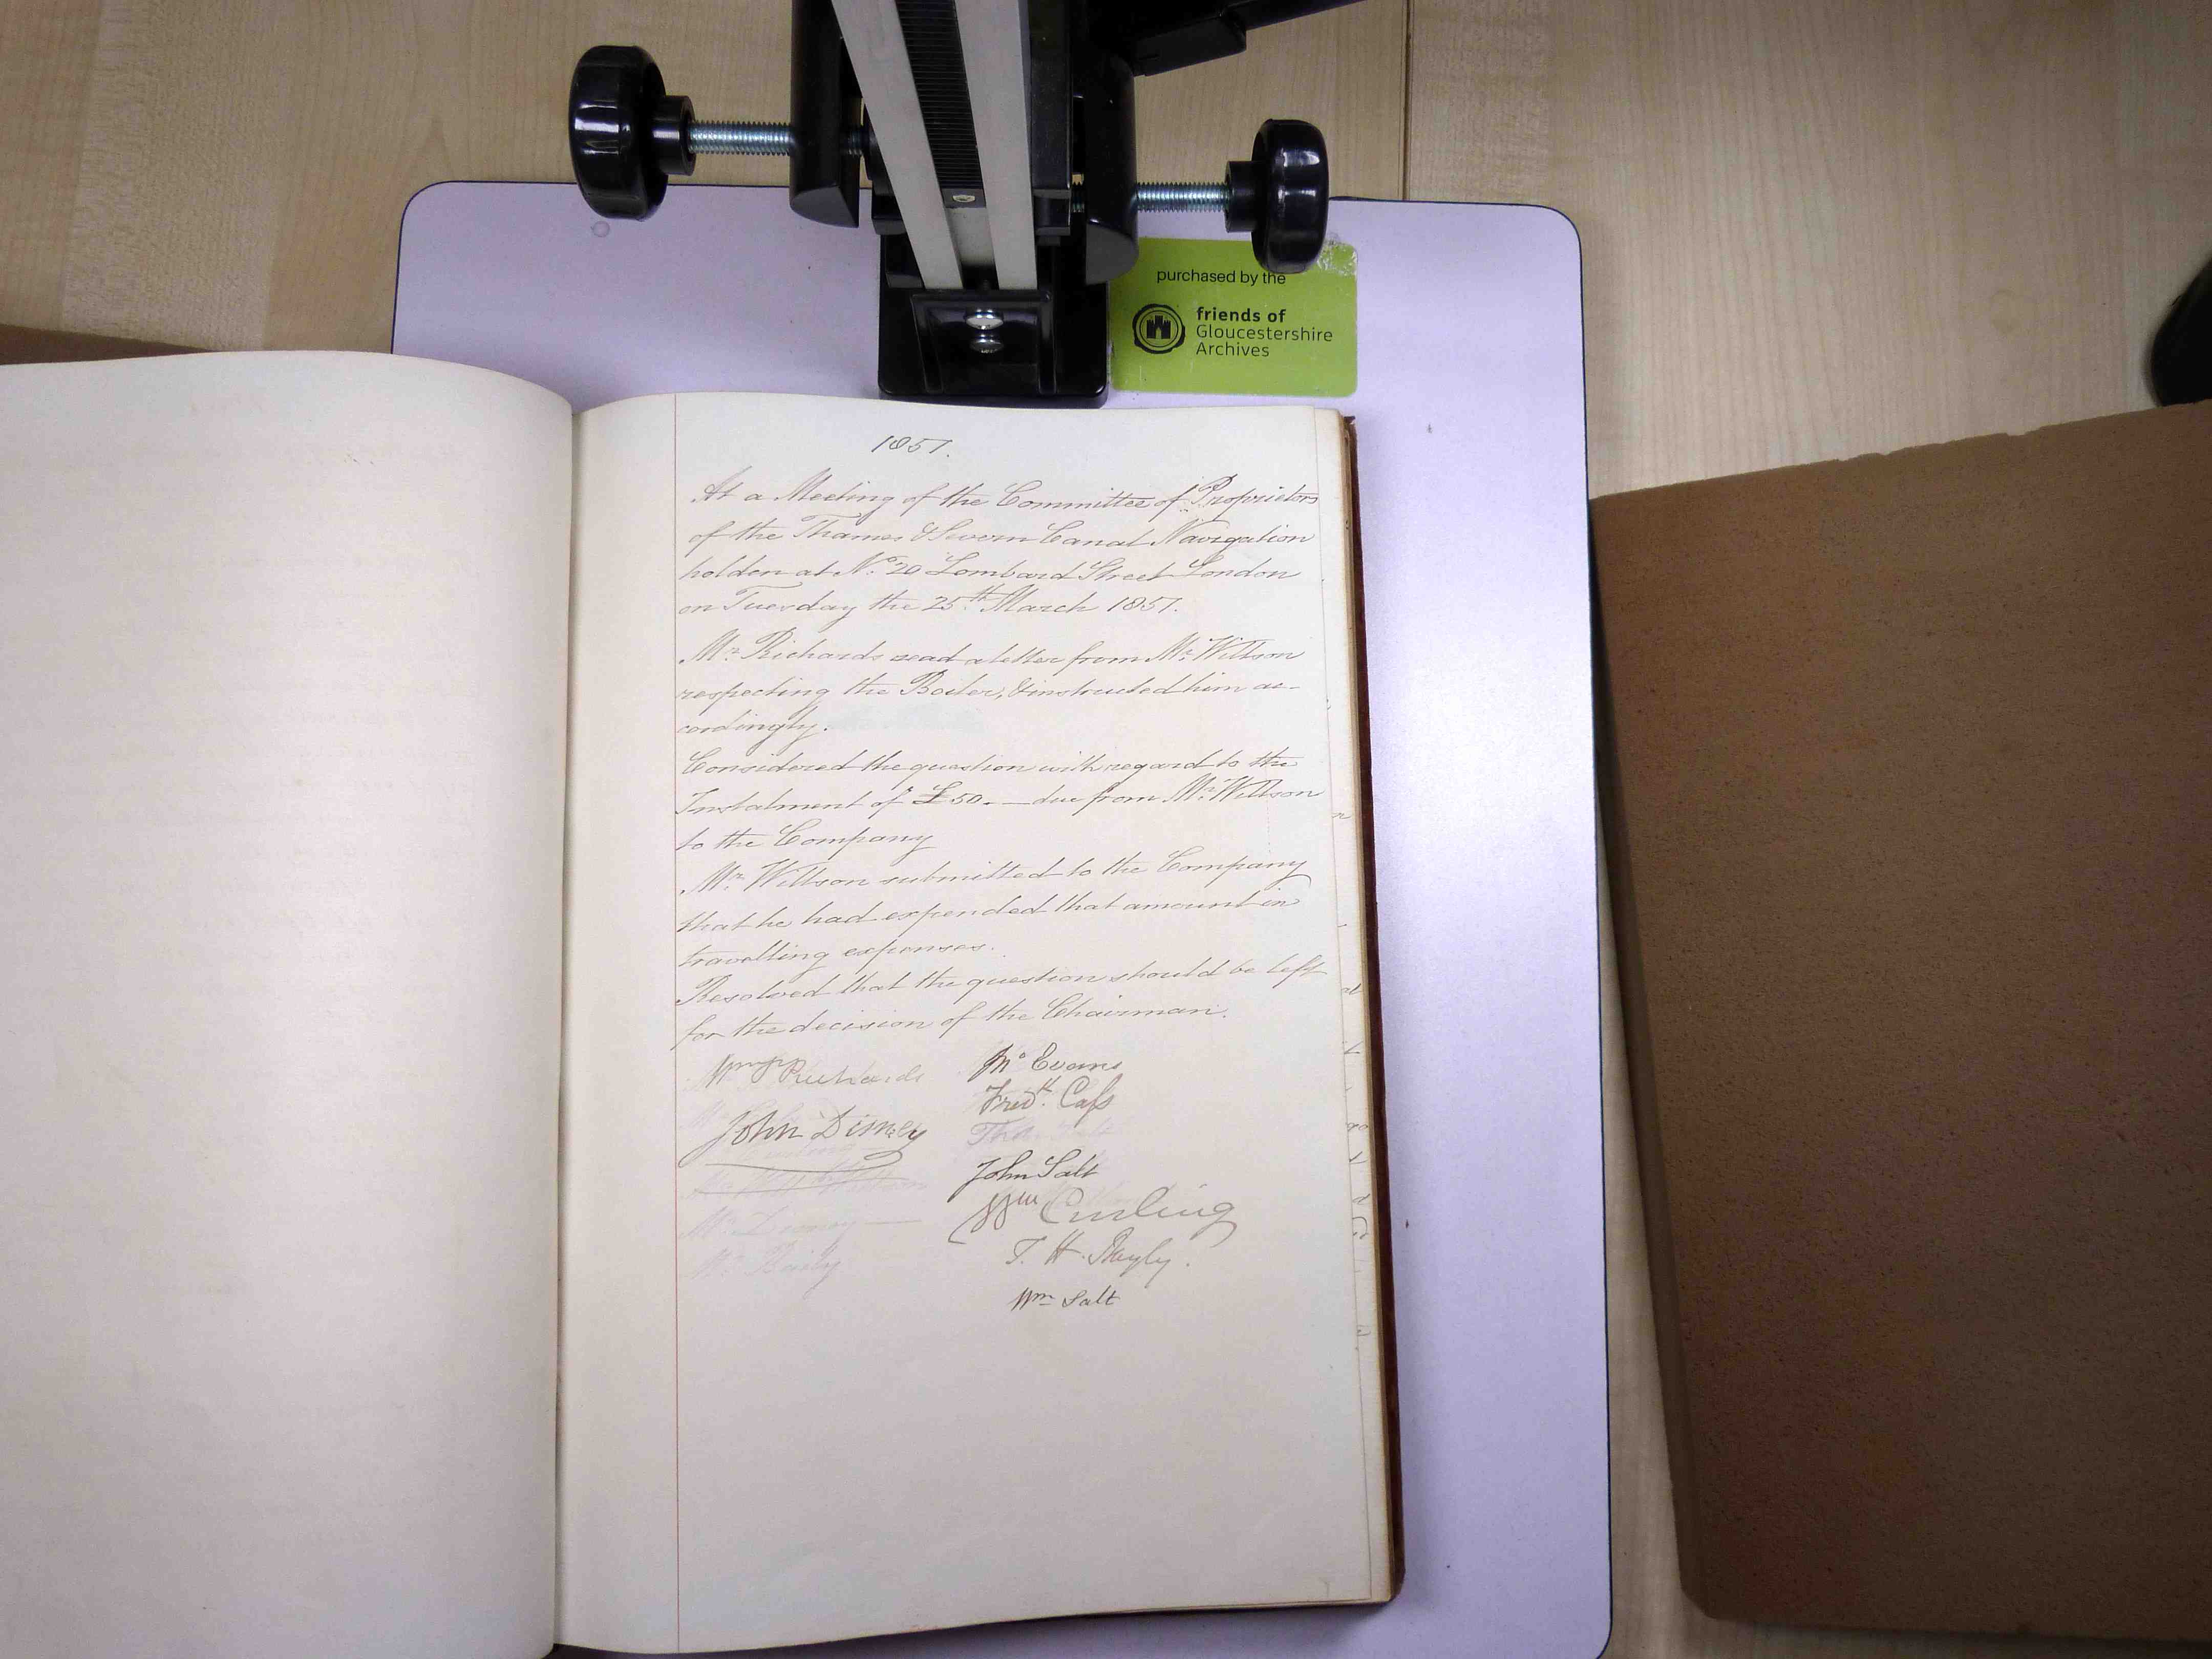 purchased by the
friends of
Gloucestershire
Archives
1851.
At a Meeting of the Committee of Proprietors
of the Thames & Severn Canal Navigation
holden at No. 20 Lombard Street London
on Tuesday the 25th March 1851.
Mr. Richards read a letter from Mr. Willson
respecting the Boiler, & instructed him ac-
cordingly.
Considered the question with regard to the
Instalment of £50. — due from Mr. Willson
to the Company
Mr. Willson submitted to the Company
that he had expended that amount in
travelling expenses.
Resolved that the question should be left
for the decision of the Chairman.
Wm Richards
John Disney
Mr. Disney
Mr. Bayly
Evans
Fredk. Cass
Thos. Salt
John Salt
Wm Curling
T. H. Bayly.
Wm Salt